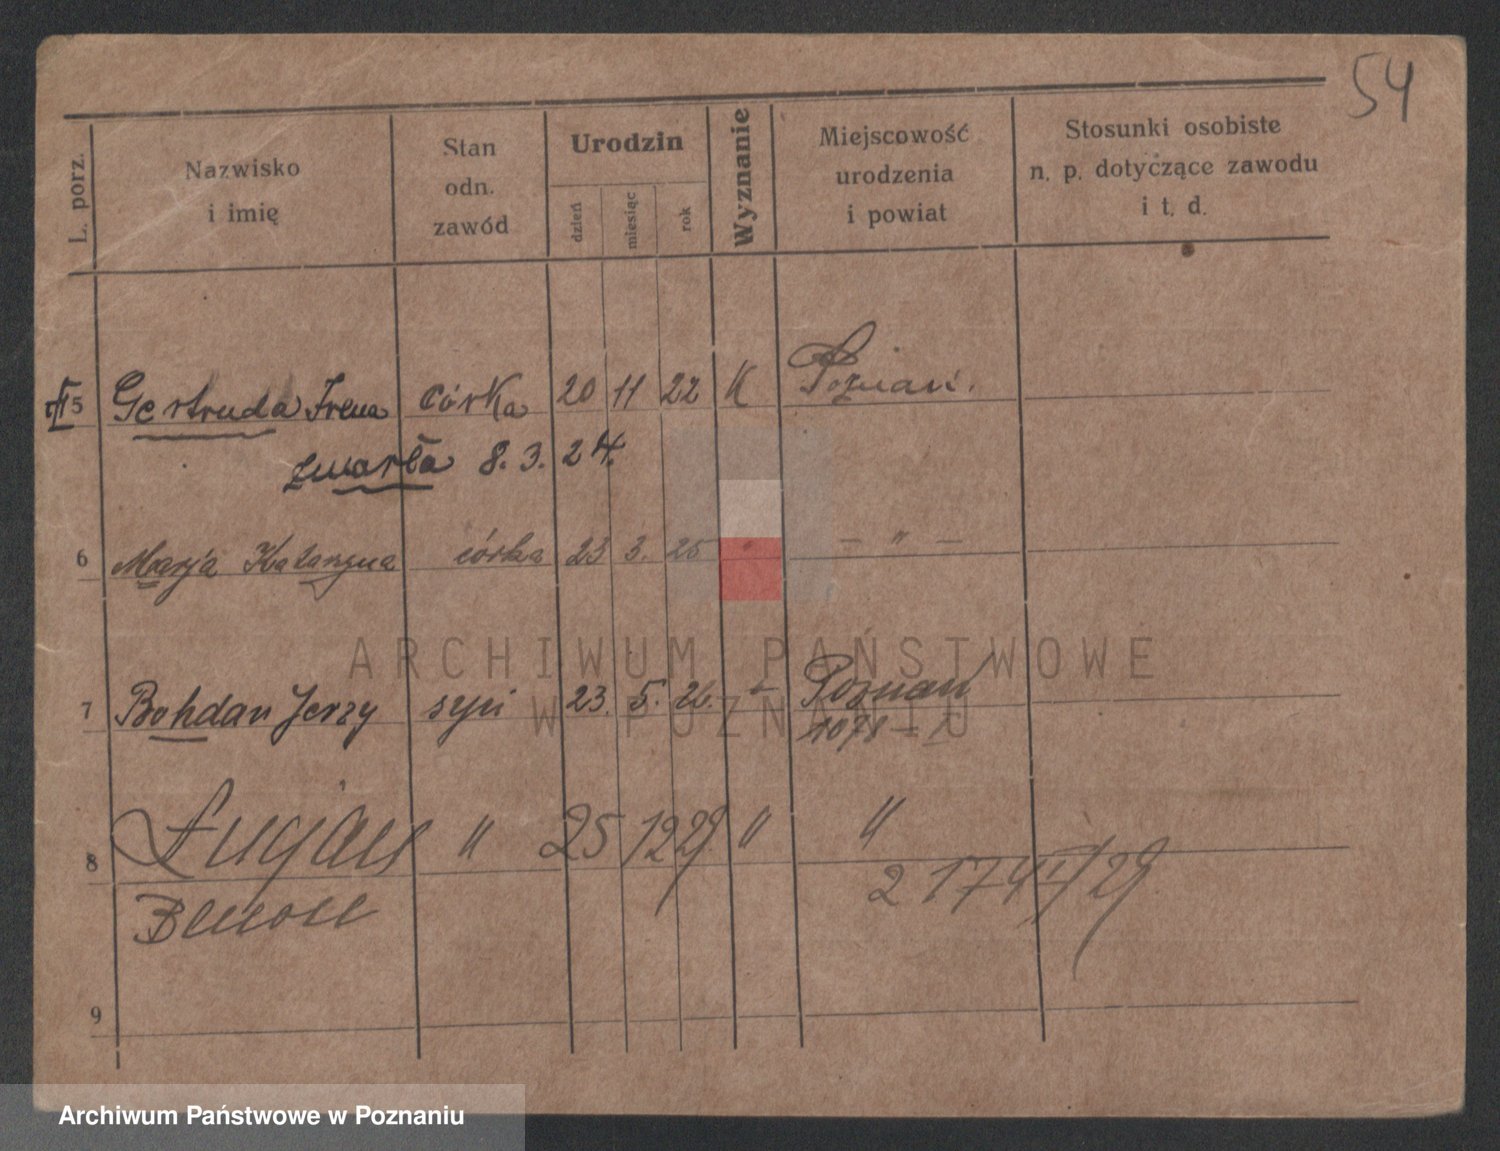 54
L. porz.
Nazwisko
i imię
Stan
odn.
zawód
Urodzin
dzień
miesiąc
rok
Wyznanie
Miejscowość
urodzenia
i powiat
Stosunki osobiste
n. p. dotyczące zawodu
i t. d.
5 Gertruda Irena córka 20 11 22 K Poznań.
zmarła 8. 3. 24.
6 Marja Katarzyna córka 23 3. 25 " – " –
ARCHIWUM PAŃSTWOWE
W POZNANIU
7 Bohdan Jerzy syn 23. 5. 26. Poznań
8 " 25 12 29 " "
9
Archiwum Państwowe w Poznaniu